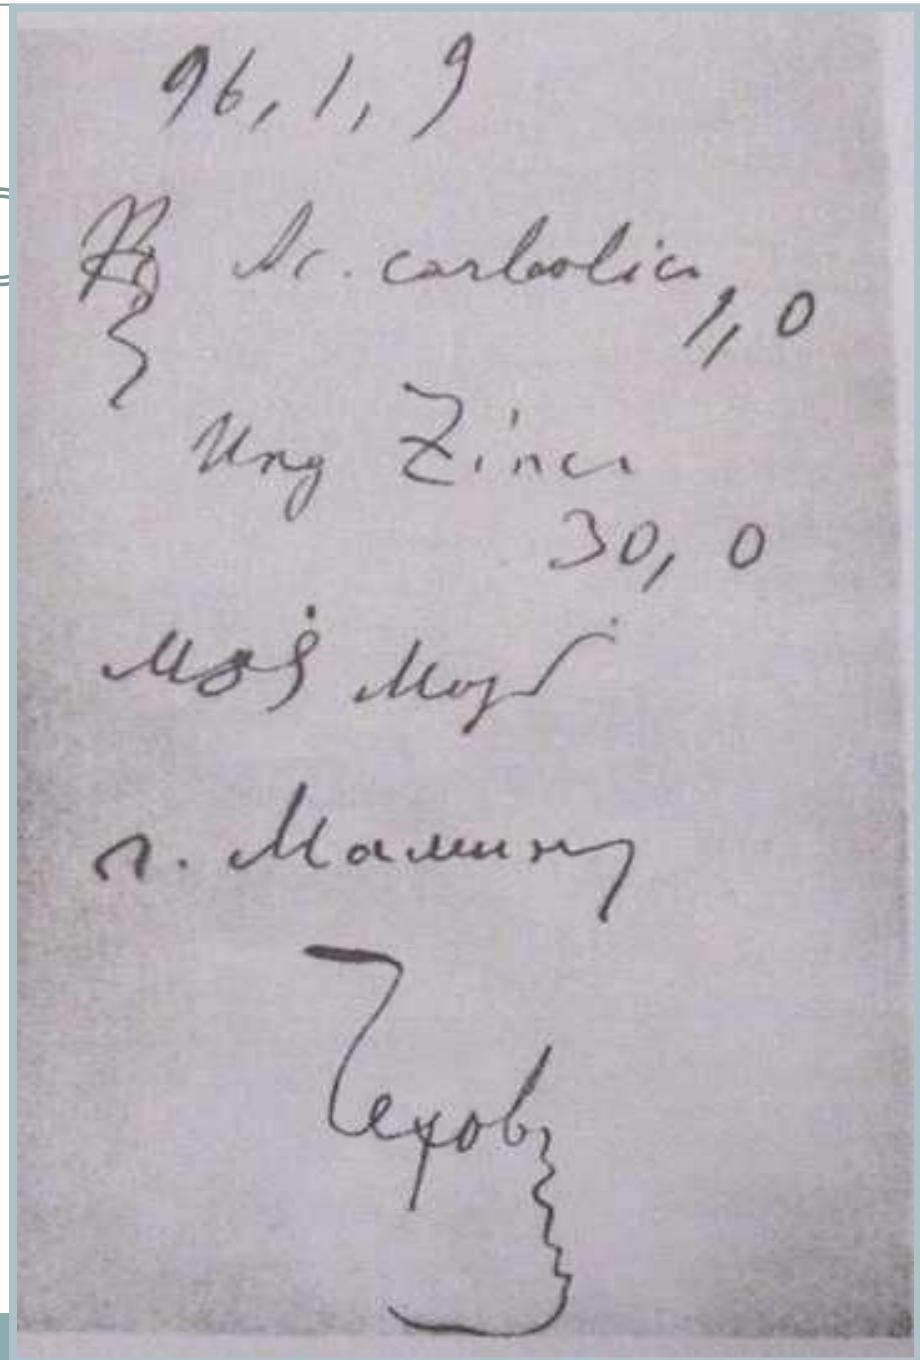 96, 1, 9
Rp Ac. carbolici
1,0
Ung Zinci
30,0
г. Мамину
Чеховъ